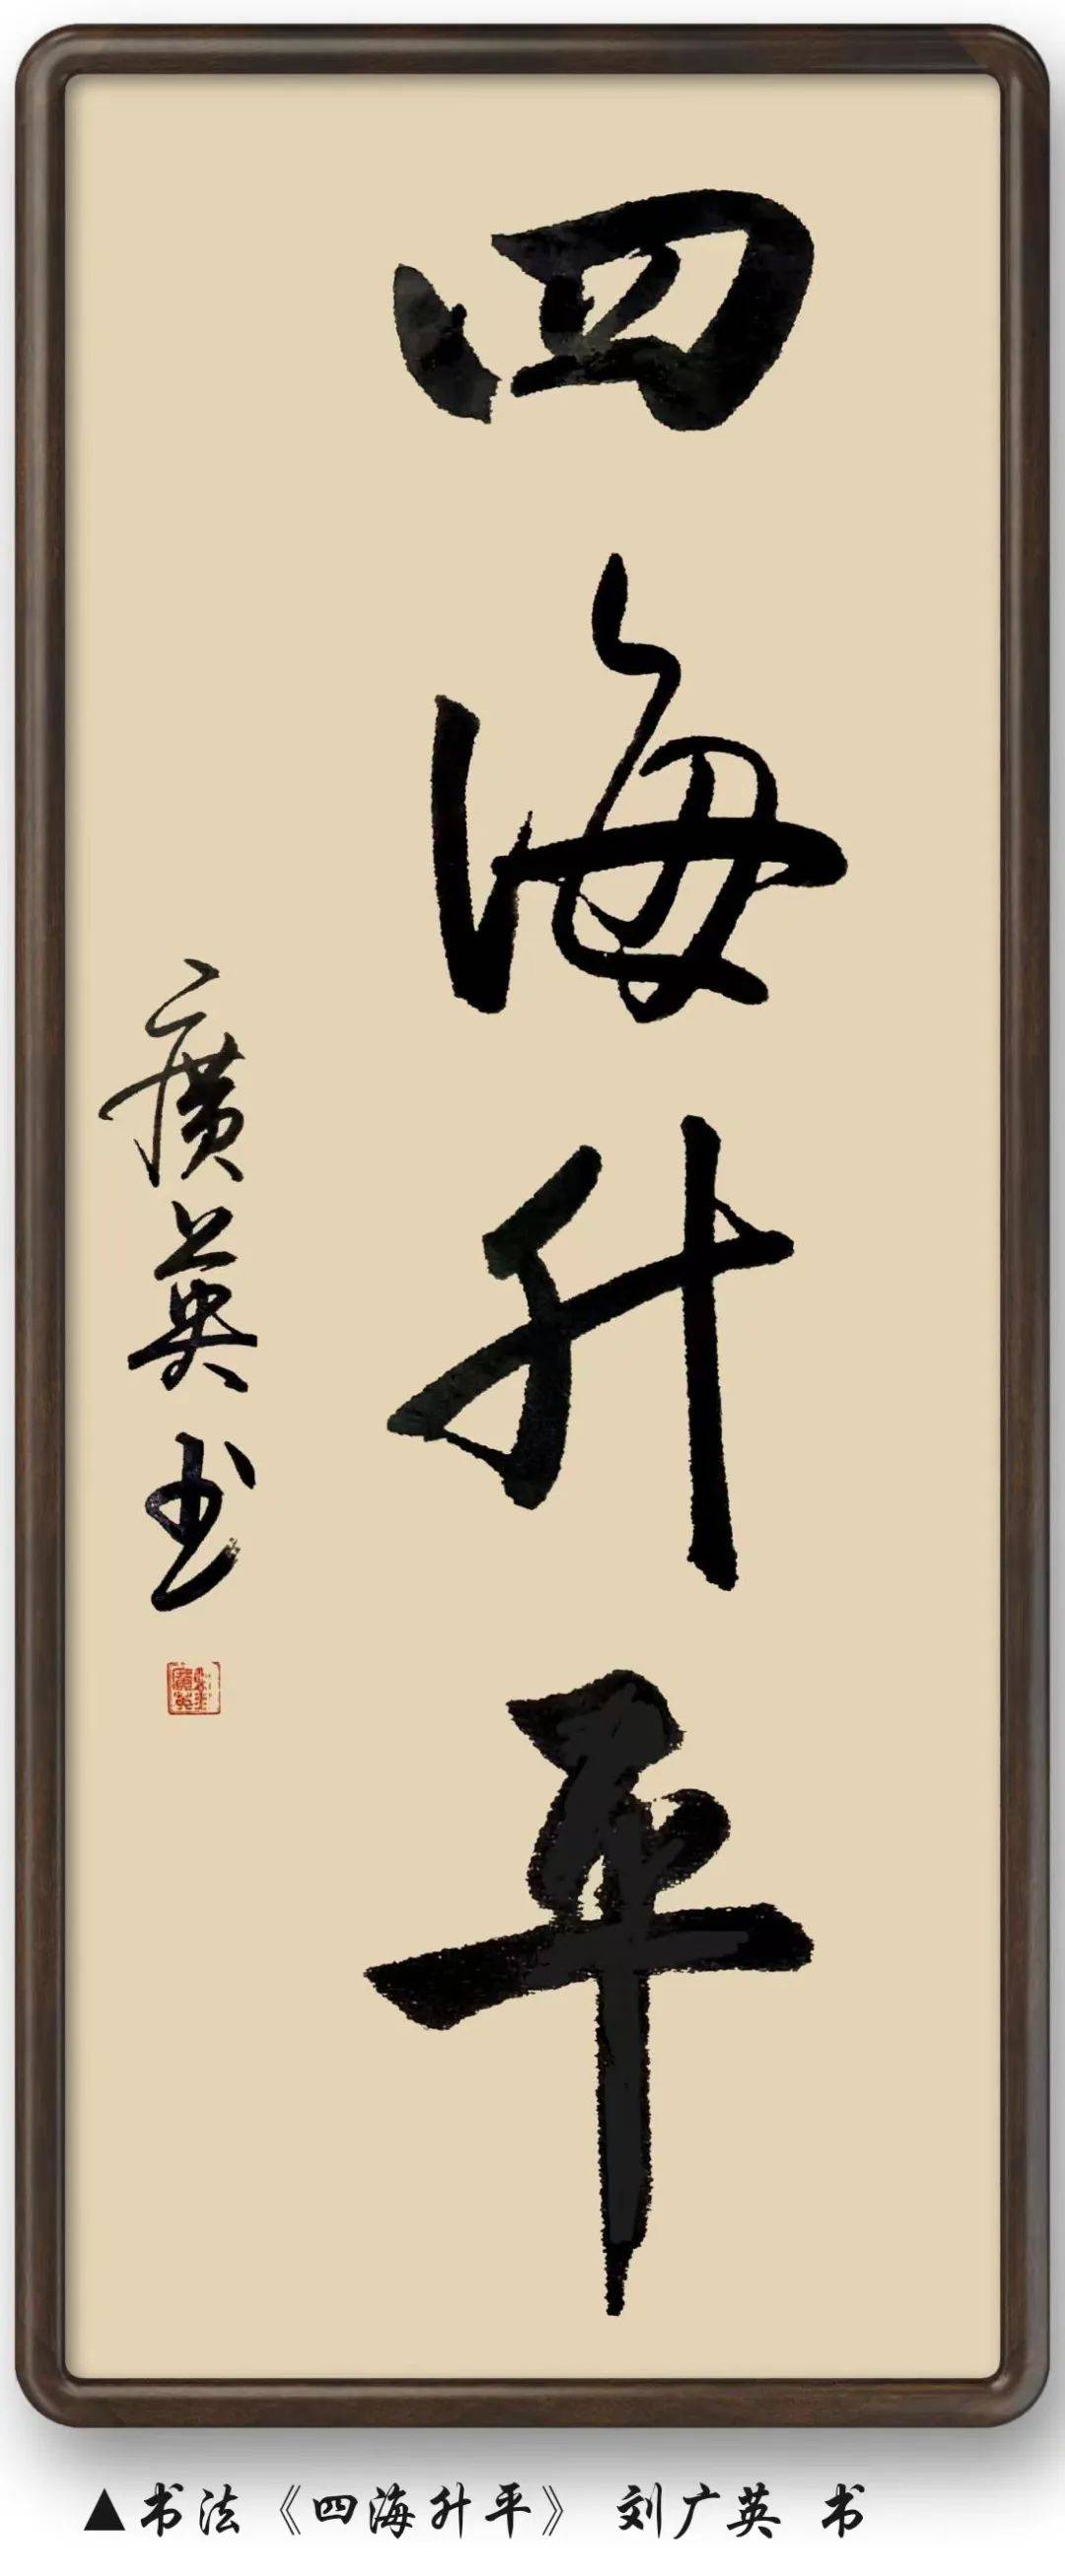 四海升平
廣英书
▲书法《四海升平》 刘广英 书